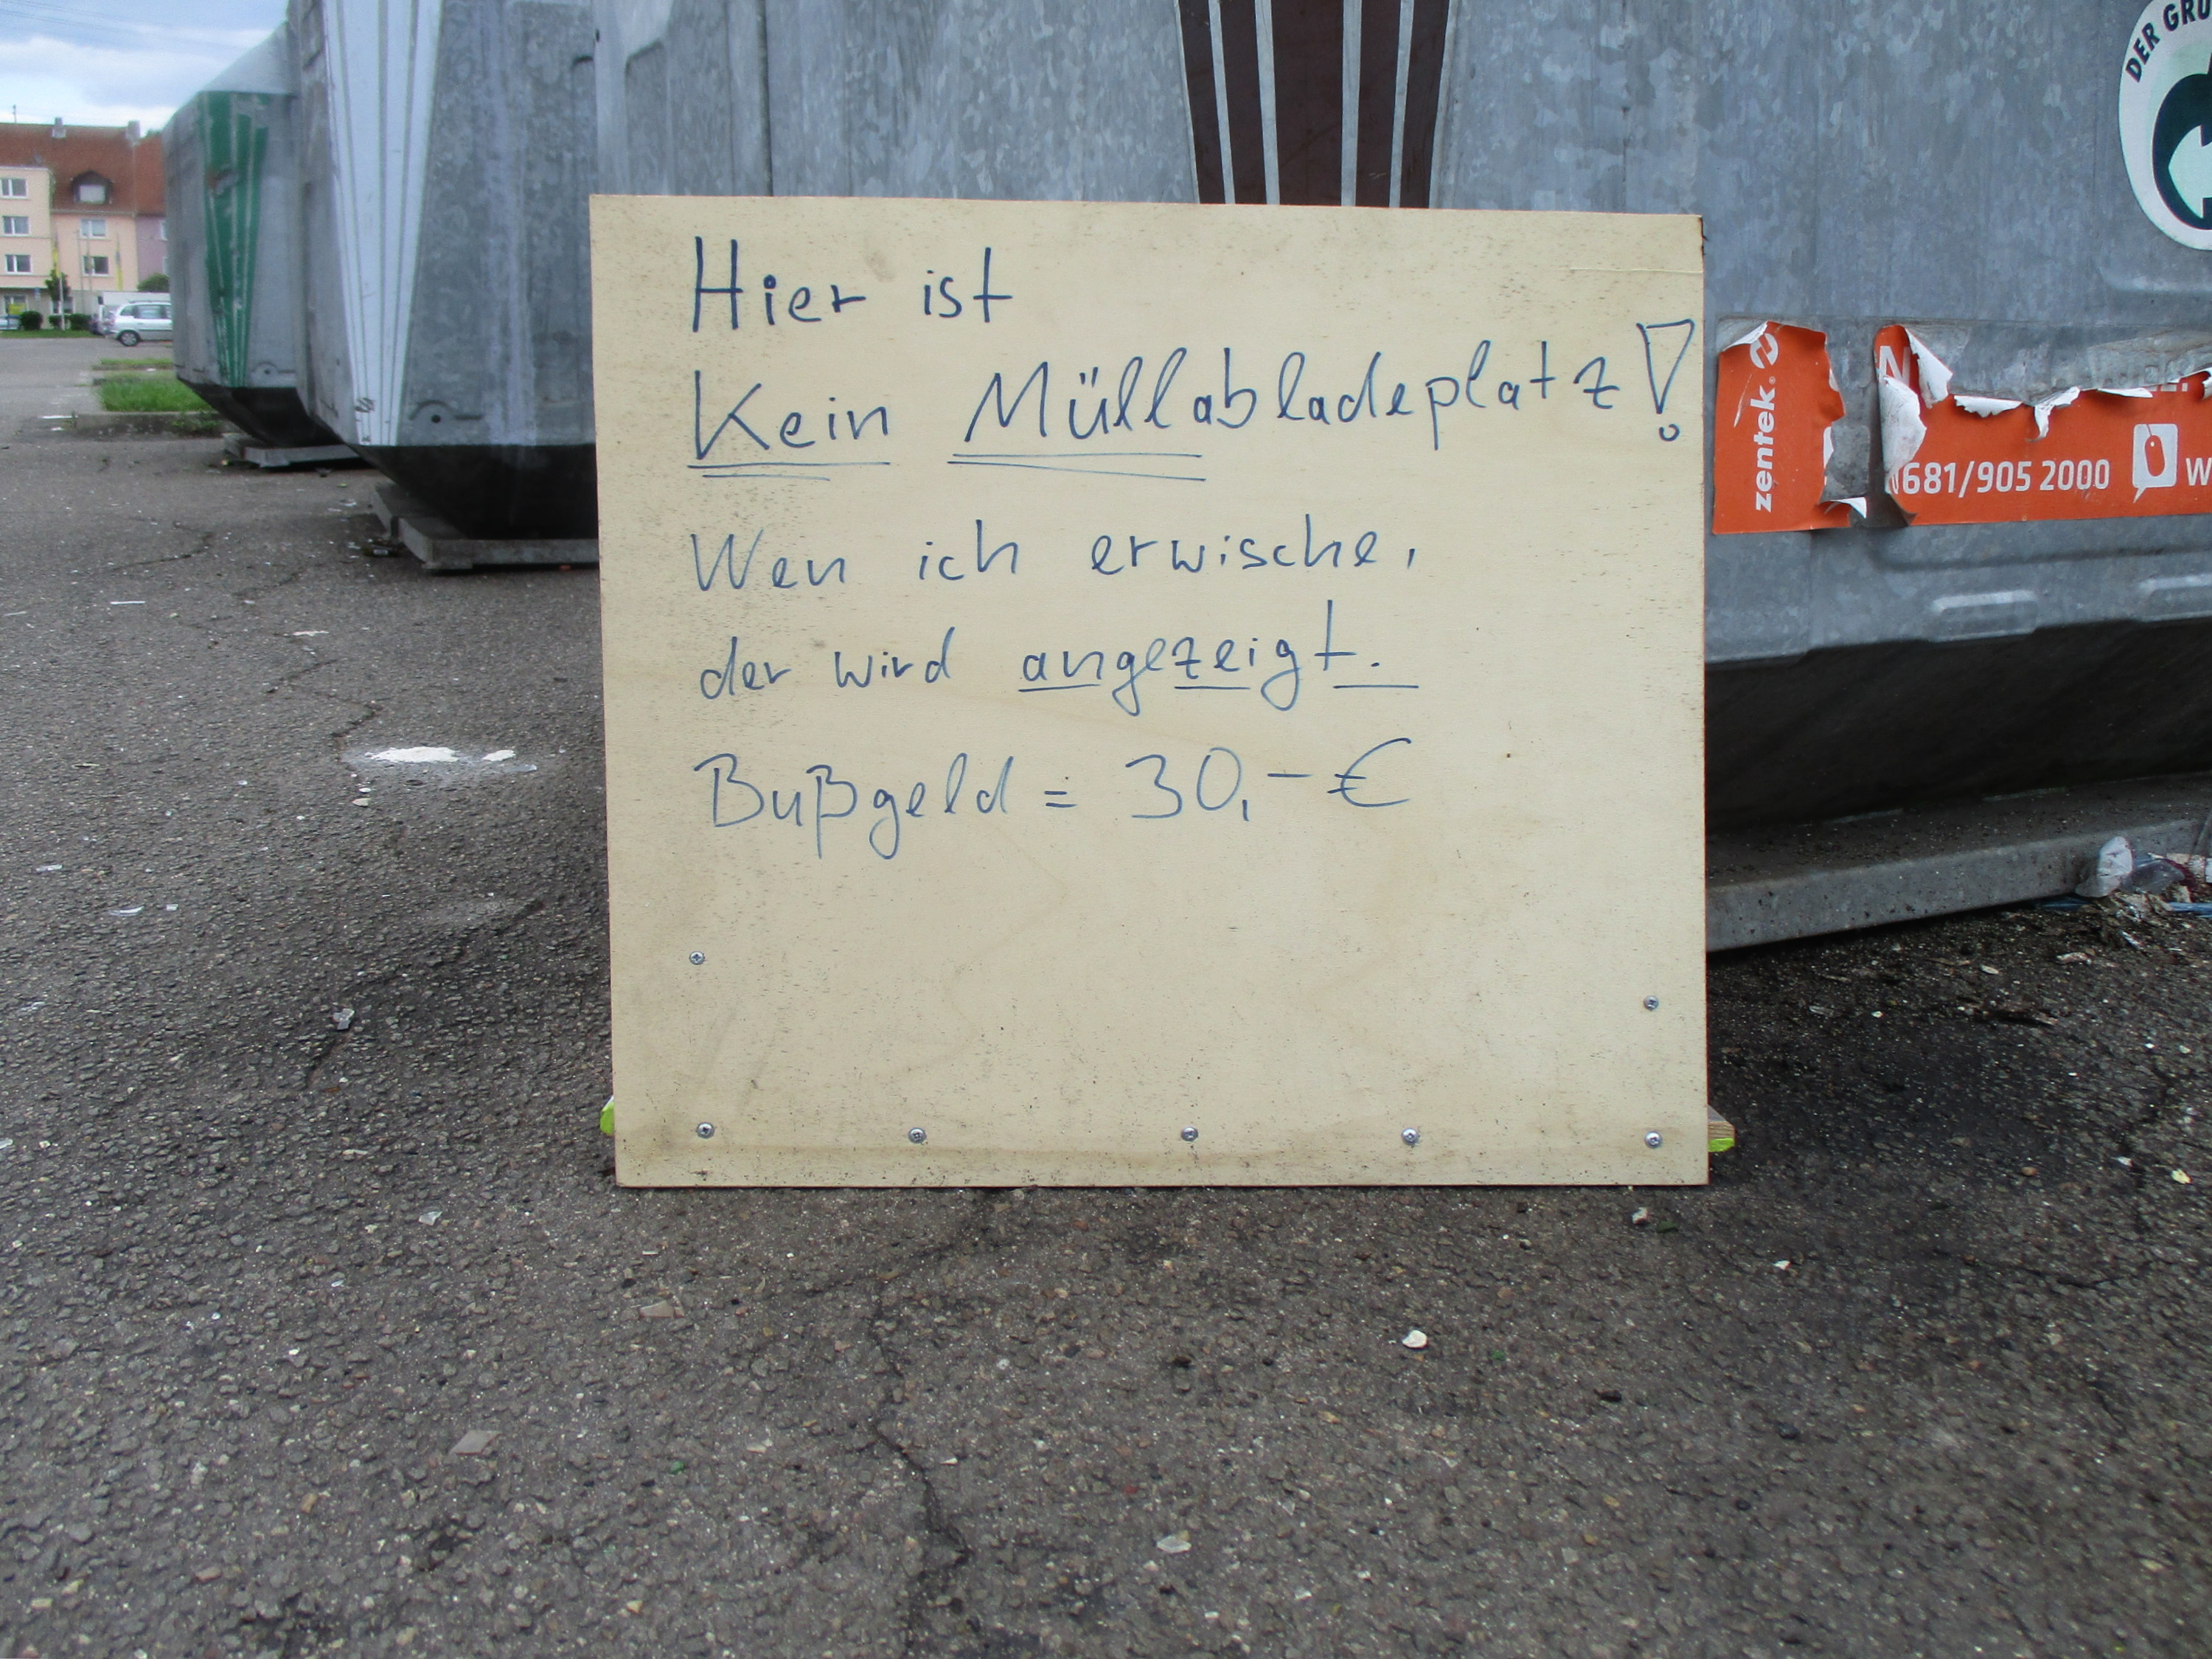 Hier ist
Kein Müllabladeplatz!
Wen ich erwische,
der wird angezeigt.
Bußgeld = 30,- €
DER GRÜ
zentek.
N
0681/905 2000
W